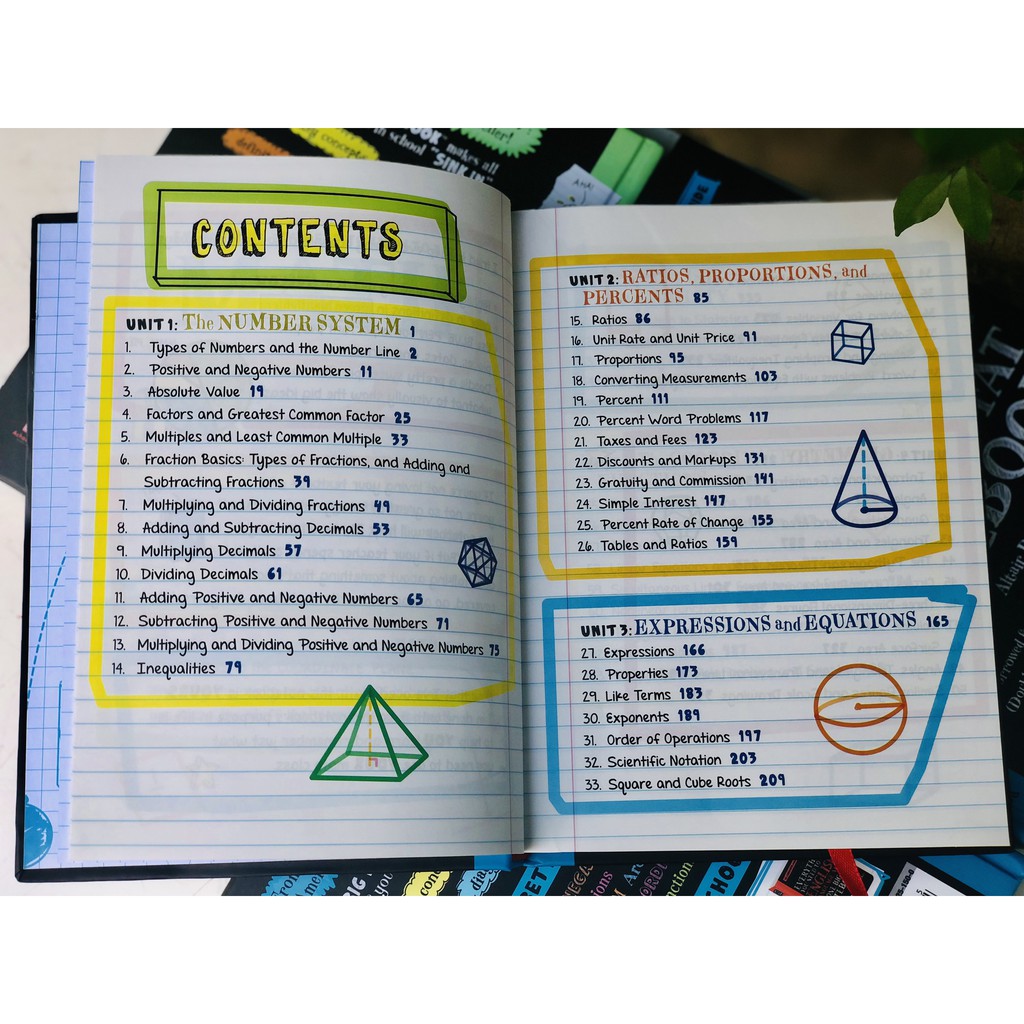 definit
concept
OOK" makes all
in school "SINK IN"
AHA!
CONTENTS
UNIT 1: The NUMBER SYSTEM 1
1. Types of Numbers and the Number Line 2
2. Positive and Negative Numbers 11
3. Absolute Value 19
4. Factors and Greatest Common Factor 25
5. Multiples and Least Common Multiple 33
6. Fraction Basics: Types of Fractions, and Adding and
Subtracting Fractions 39
7. Multiplying and Dividing Fractions 49
8. Adding and Subtracting Decimals 53
9. Multiplying Decimals 57
10. Dividing Decimals 61
11. Adding Positive and Negative Numbers 65
12. Subtracting Positive and Negative Numbers 71
13. Multiplying and Dividing Positive and Negative Numbers 75
14. Inequalities 79
UNIT 2: RATIOS, PROPORTIONS, and
PERCENTS 85
15. Ratios 86
16. Unit Rate and Unit Price 91
17. Proportions 95
18. Converting Measurements 103
19. Percent 111
20. Percent Word Problems 117
21. Taxes and Fees 123
22. Discounts and Markups 131
23. Gratuity and Commission 141
24. Simple Interest 147
25. Percent Rate of Change 155
26. Tables and Ratios 159
UNIT 3: EXPRESSIONS and EQUATIONS 165
27. Expressions 166
28. Properties 173
29. Like Terms 183
30. Exponents 189
31. Order of Operations 197
32. Scientific Notation 203
33. Square and Cube Roots 209